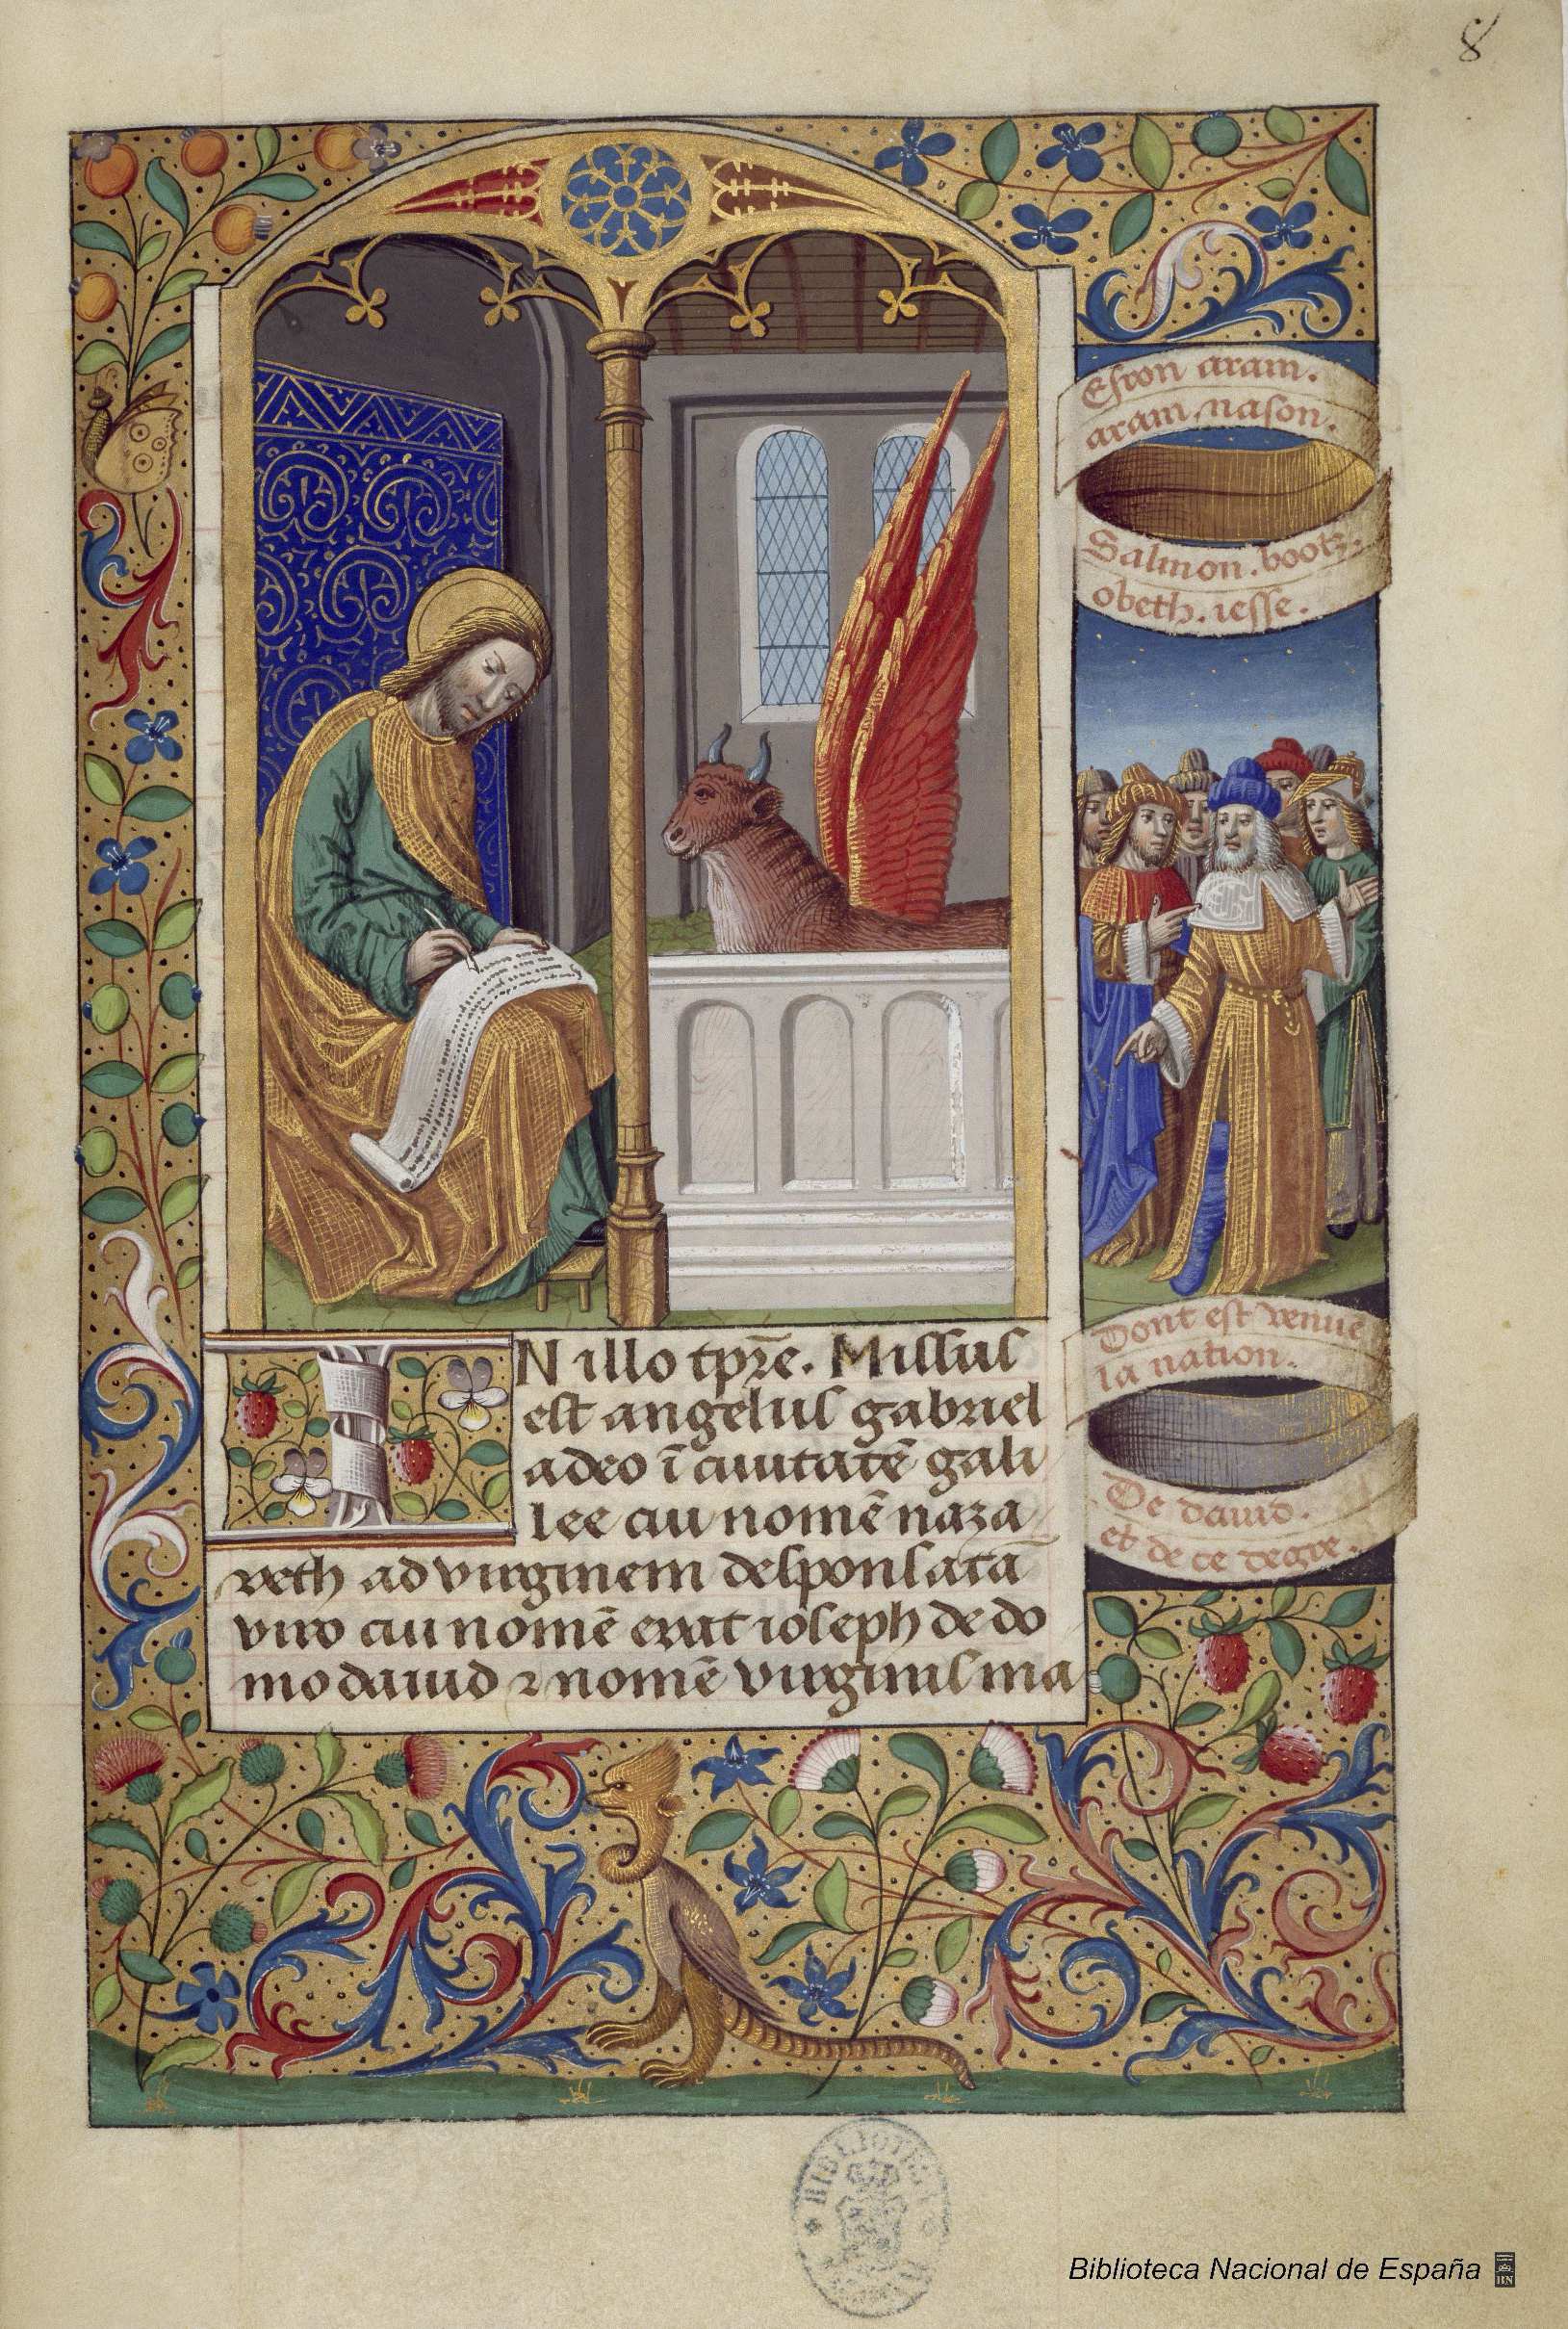 8
Esron aram.
aram nason.
Salmon. booz.
obeth. iesse.
Dont est venue
la nation.
De dauid.
et de ce degre.
IN illo tp̄re. Missus
est angelus gabriel
adeo ī ciuitatē gali
lee cui nomē naza
reth ad virginem desponsatā
viro cui nomē erat ioseph de do
mo dauid ⁊ nomē virginis ma
BIBLIOTECA
Biblioteca Nacional de España
BN